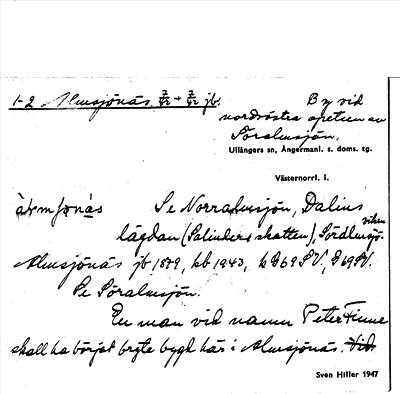 1-2 Almsjönäs 7/72 + 7/72 jb.
By vid
nordvästra spetsen av
Söralmsjön.
Ullångers sn, Ångermanl. s. doms. tg.
Västernorrl. l.
Se Norralmsjön, Dalius
lägdan (Salinders skatten), Söralmsjö-
viken
Almsjönäs jb 1879, kb 1943, k D69 SV, D69SV.
Se Söralmsjön.
En man vid namn Peter Finne
skall ha börjat bryta bygd här i Almsjönäs. Vid
Sven Hiller 1947